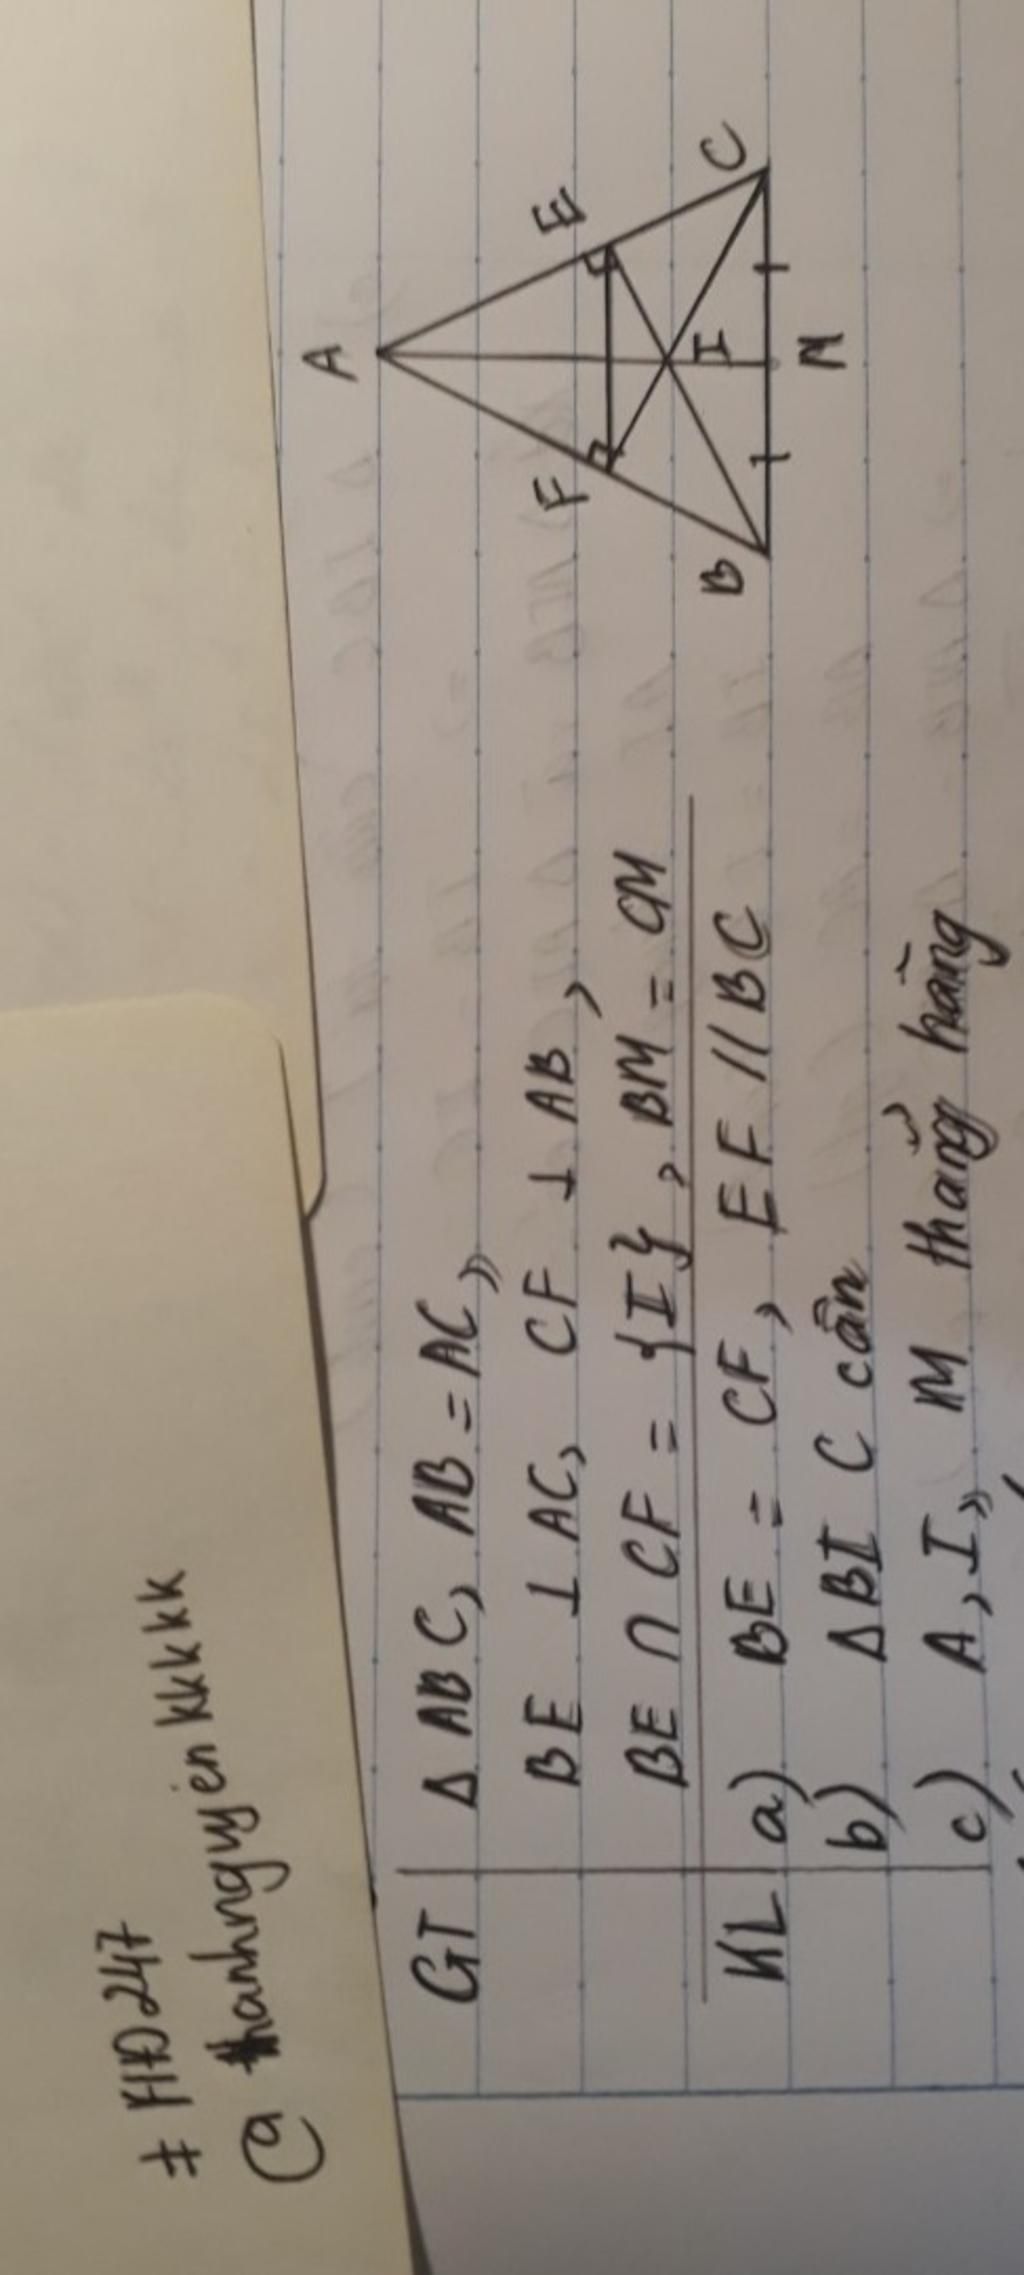 # HĐ247
@ thanhnguyenkkkk
GT
Δ ABC, AB = AC,
BE ⊥ AC, CF ⊥ AB,
BE ∩ CF = {I}, BM = CM
KL
a) BE = CF, EF // BC
b) ΔBIC cân
c) A, I, M thẳng hàng
A
F
E
I
B
M
C